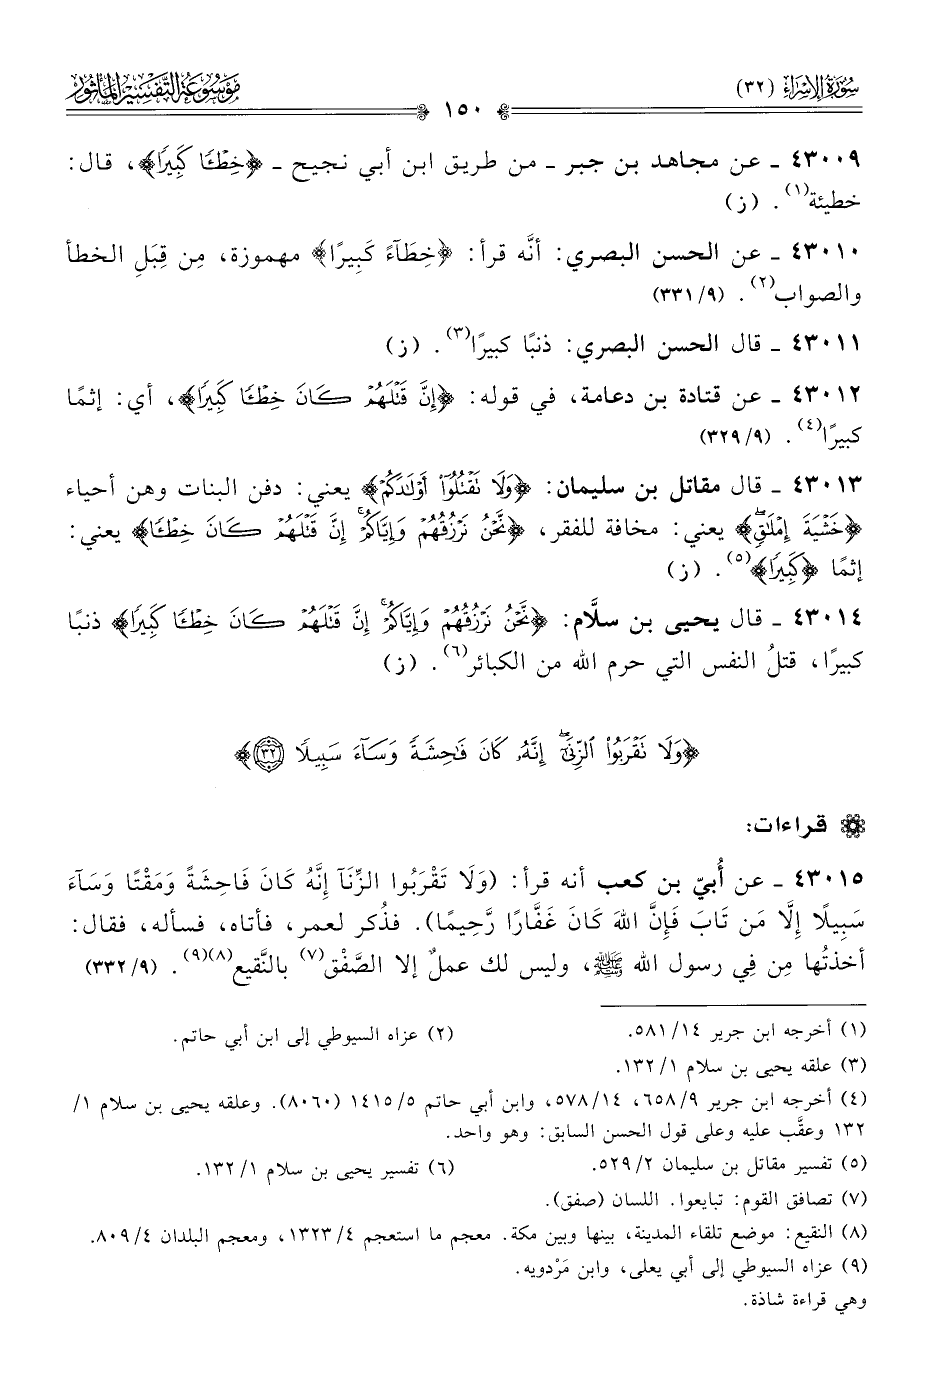 سُورَةُ الإِسْرَاءِ (٣٢)
١٥٠
مَوْسُوعَةُ التَّفْسِيْرِ المَأْثُورِ
٤٣٠٠٩ ـ عن مجاهد بن جبر ـ من طريق ابن أبي نجيح ـ ﴿خِطْـًٔا كَبِيرًا﴾، قال:
خطيئة(١). (ز)
٤٣٠١٠ ـ عن الحسن البصري: أنَّه قرأ: ﴿خِطَآءً كَبِيرًا﴾ مهموزة، مِن قِبَلِ الخطأ
والصواب(٢). (٩/ ٣٣١)
٤٣٠١١ ـ قال الحسن البصري: ذنبًا كبيرًا(٣). (ز)
٤٣٠١٢ ـ عن قتادة بن دعامة، في قوله: ﴿إِنَّ قَتْلَهُمْ كَانَ خِطْـًٔا كَبِيرًا﴾، أي: إثمًا
كبيرًا(٤). (٩/ ٣٢٩)
٤٣٠١٣ ـ قال مقاتل بن سليمان: ﴿وَلَا نَقْتُلُوٓا۟ أَوْلَٰدَكُمْ﴾ يعني: دفن البنات وهن أحياء
﴿خَشْيَةَ إِمْلَٰقٍ﴾ يعني: مخافة للفقر، ﴿نَّحْنُ نَرْزُقُهُمْ وَإِيَّاكُمْ إِنَّ قَتْلَهُمْ كَانَ خِطْـًٔا﴾ يعني:
إثمًا ﴿كَبِيرًا﴾(٥). (ز)
٤٣٠١٤ ـ قال يحيى بن سلَّام: ﴿نَّحْنُ نَرْزُقُهُمْ وَإِيَّاكُمْ إِنَّ قَتْلَهُمْ كَانَ خِطْـًٔا كَبِيرًا﴾ ذنبًا
كبيرًا، قتلُ النفس التي حرم الله من الكبائر(٦). (ز)
﴿وَلَا تَقْرَبُوا۟ ٱلزِّنَىٰٓ إِنَّهُۥ كَانَ فَٰحِشَةً وَسَآءَ سَبِيلًا ٣٢﴾
قراءات:
٤٣٠١٥ ـ عن أُبيّ بن كعب أنه قرأ: (وَلَا تَقْرَبُوا الزِّنَآ إِنَّهُ كَانَ فَاحِشَةً وَمَقْتًا وَسَآءَ
سَبِيلًا إِلَّا مَن تَابَ فَإِنَّ اللهَ كَانَ غَفَّارًا رَّحِيمًا). فذُكر لعمر، فأتاه، فسأله، فقال:
أخذتُها مِن فِي رسول الله ﷺ، وليس لك عملٌ إلا الصَّفْق(٧) بالنَّقيع(٨)(٩). (٩/ ٣٣٢)
(١) أخرجه ابن جرير ١٤/ ٥٨١. (٢) عزاه السيوطي إلى ابن أبي حاتم.
(٣) علقه يحيى بن سلام ١/ ١٣٢.
(٤) أخرجه ابن جرير ٩/ ٦٥٨، ١٤/ ٥٧٨، وابن أبي حاتم ٥/ ١٤١٥ (٨٠٦٠). وعلقه يحيى بن سلام ١/
١٣٢ وعقَّب عليه وعلى قول الحسن السابق: وهو واحد.
(٥) تفسير مقاتل بن سليمان ٢/ ٥٢٩. (٦) تفسير يحيى بن سلام ١/ ١٣٢.
(٧) تصافق القوم: تبايعوا. اللسان (صفق).
(٨) النقيع: موضع تلقاء المدينة، بينها وبين مكة. معجم ما استعجم ٤/ ١٣٢٣، ومعجم البلدان ٤/ ٨٠٩.
(٩) عزاه السيوطي إلى أبي يعلى، وابن مَرْدويه.
وهي قراءة شاذة.